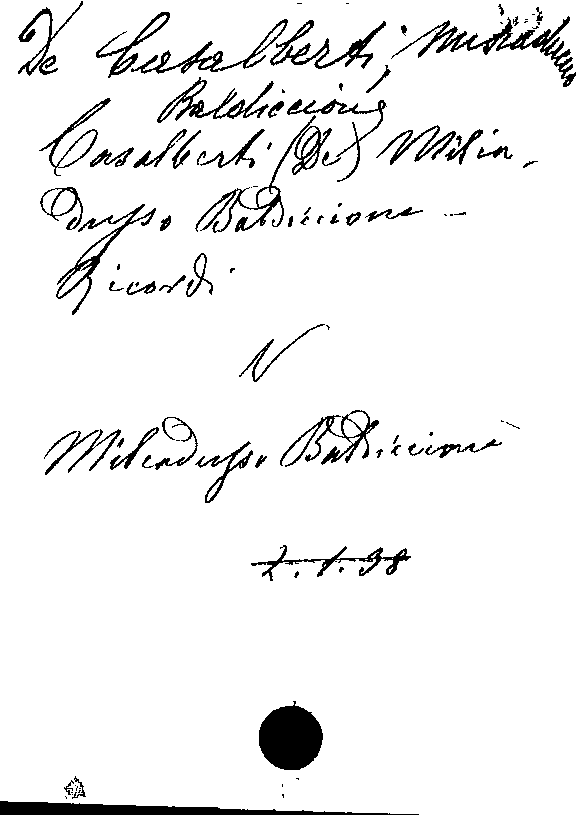 De Casalberti, Miliadusso
Baldiccione
Casalberti (De) Milia-
dusso Baldiccione -
Ricordi
V
Miliadusso Baldiccione
2.1.98